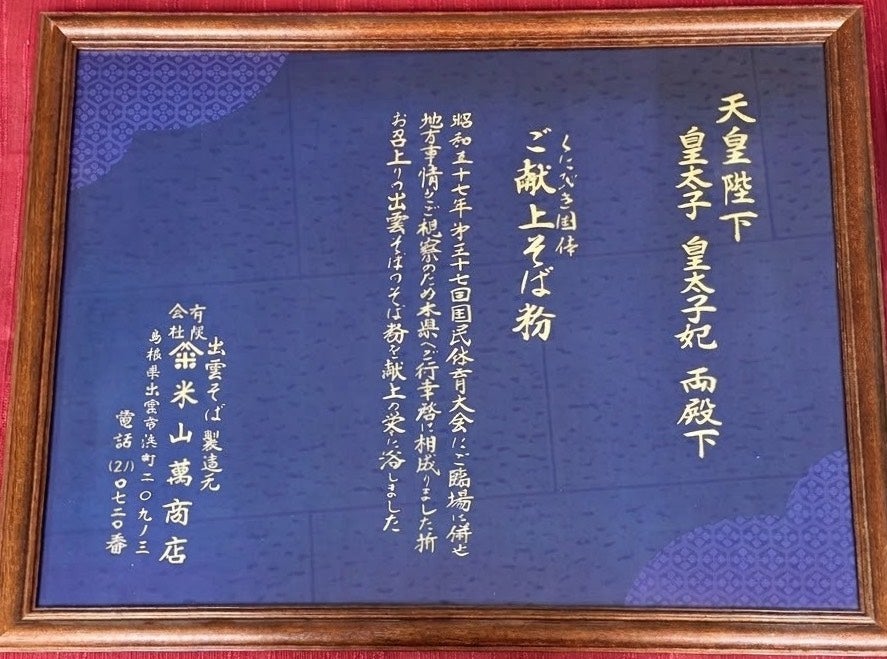 天皇陛下
皇太子 皇太子妃 両殿下
くにびき国体
ご献上そば粉
昭和五十七年第三十七回国民体育大会にご臨場に併せ
地方事情をご視察のため本県へご行幸啓に相成りました折
お召上りの出雲そばのそば粉を献上の栄に浴しました
出雲そば製造元
有限会社 米山萬商店
島根県出雲市浜町二〇九ノ三
電話(21)〇七二〇番